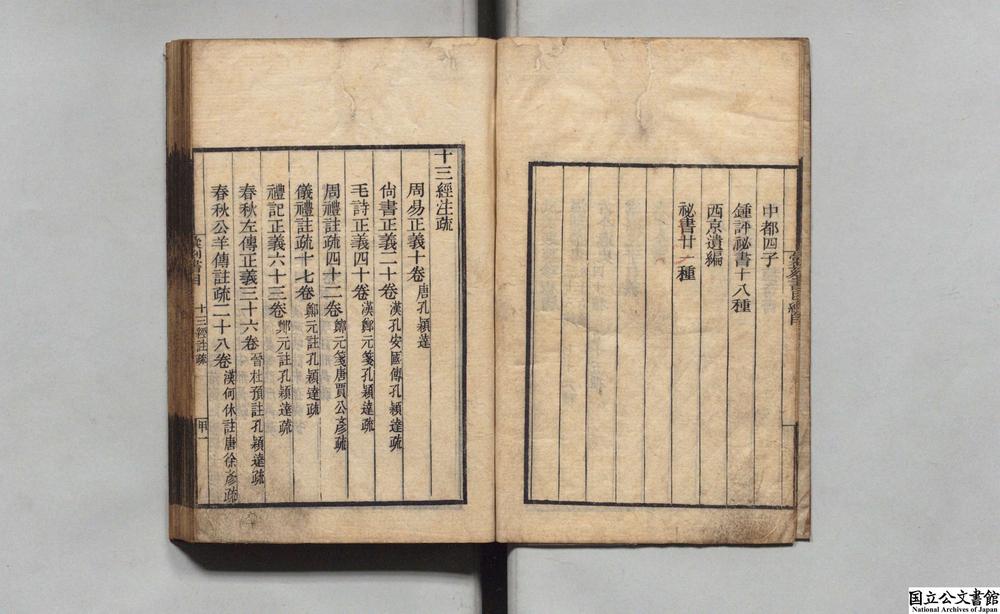 中都四子
鍾評祕書十八種
西京遺編
祕書廿一種
十三經注疏
周易正義十卷 唐孔穎達
尙書正義二十卷 漢孔安國傳孔穎達疏
毛詩正義四十卷 漢鄭元箋孔穎達疏
周禮註疏四十二卷 鄭元箋唐賈公彥疏
儀禮註疏十七卷 鄭元註孔穎達疏
禮記正義六十三卷 鄭元註孔穎達疏
春秋左傳正義三十六卷 晉杜預註孔穎達疏
春秋公羊傳註疏二十八卷 漢何休註唐徐彥疏
彙刻書目
十三經註疏
甲一
国立公文書館
National Archives of Japan